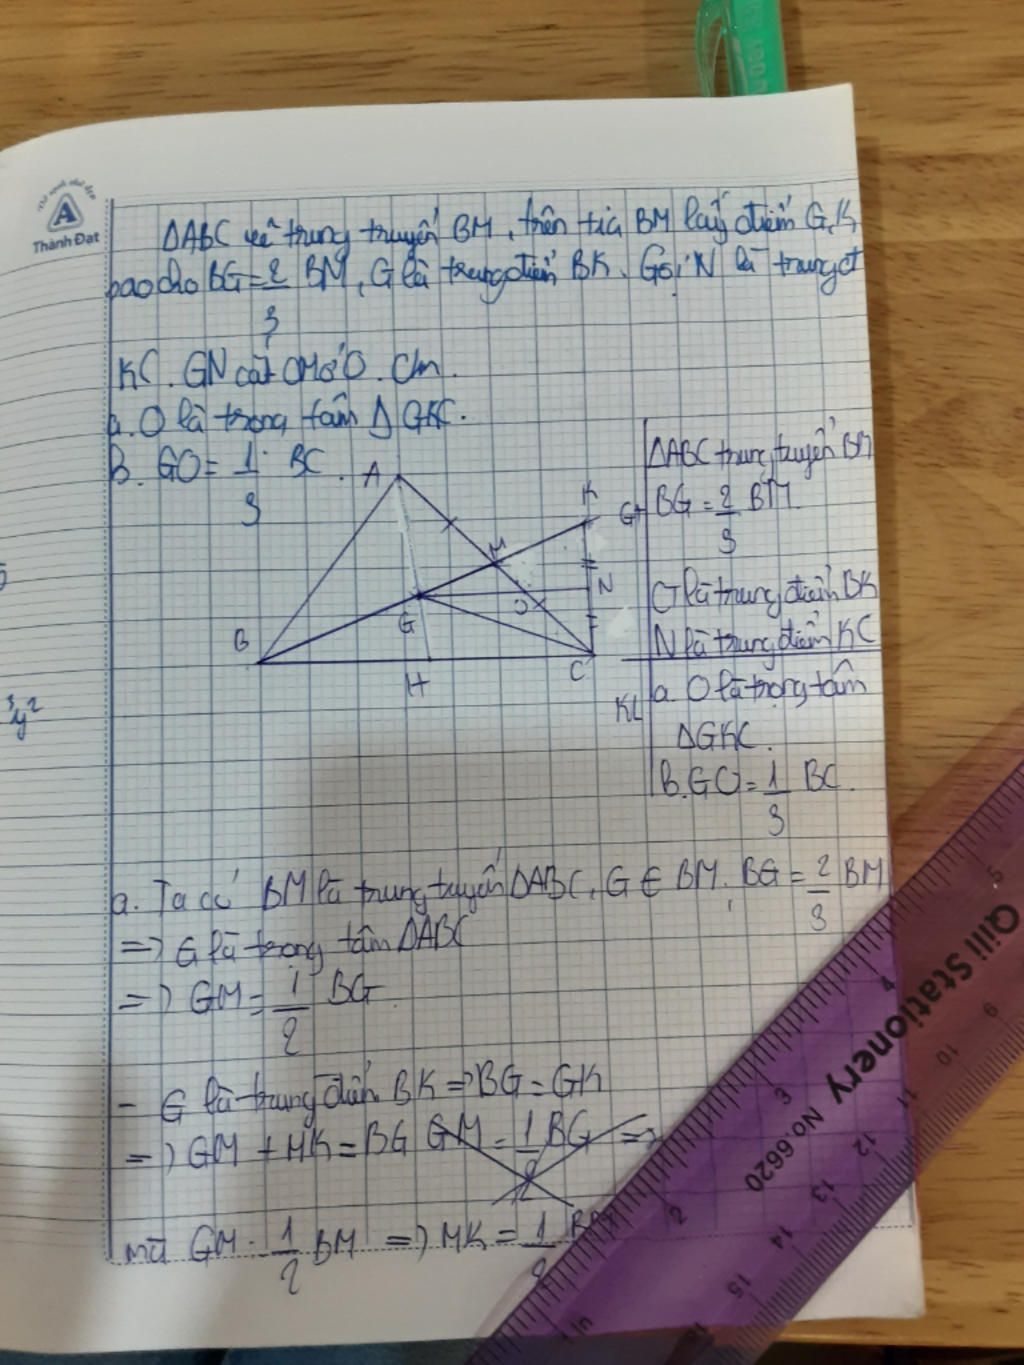 Vở sạch chữ đẹp
A
Thành Đạt
ΔABC vẽ trung truyến BM, trên tia BM lấy điểm G,K
sao cho BG = 2/3 BM, G là trung điểm BK. Gọi N là trung đ
KC. GN cắt CM ở O. Cm.
a. O là trọng tâm Δ GKC.
B. GO = 1/3 BC.
A
K
M
N
O
G
B
H
C
GT
ΔABC trung tuyến BM
BG = 2/3 BM.
G là trung điểm BK
N là trung điểm KC
KL
a. O là trọng tâm
ΔGKC.
B. GO = 1/3 BC.
3y2
a. Ta có BM là trung tuyến ΔABC, G ∈ BM. BG = 2/3 BM
=> G là trong tâm ΔABC
=> GM = 1/2 BG.
- G là trung điểm BK => BG = GK
=> GM + MK = BG GM = 1/2 BG =>
mà GM = 1/2 BM => MK = 1/2
Qili Stationery
No 6620
5
4
3
2
6
10
11
12
13
14
15